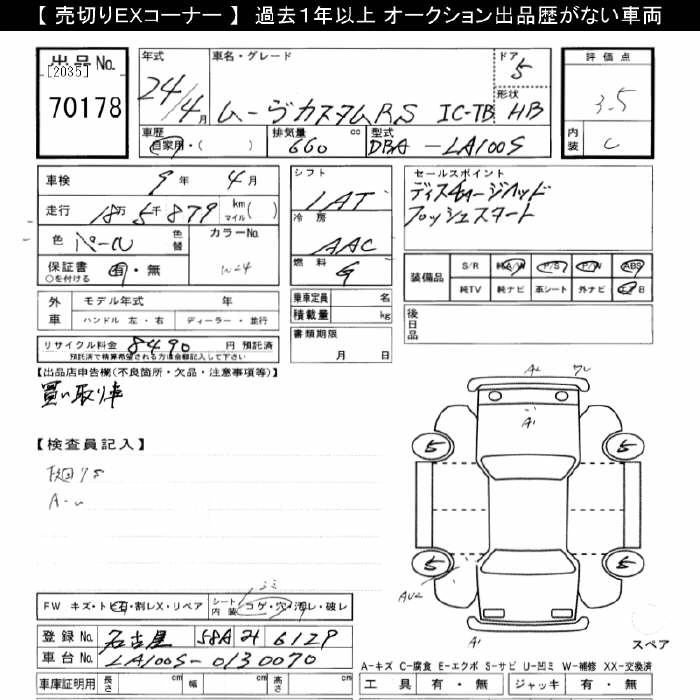 【 売切りEXコーナー 】 過去１年以上 オークション出品歴がない車両
出品No.
[2035]
70178
年式
24/4月
車名・グレード
ムーヴカスタムRS IC-TB
ドア
5
形状
HB
車歴
自家用・( )
排気量
660 cc
型式
DBA-LA100S
評価点
3.5
内装
C
車検 9年 4月
走行 18万5千879 km マイル( )
色 パール 色替
カラーNo.
W24
保証書 有・無
○を付ける
外車 モデル年式 年
ハンドル 左・右 ディーラー・並行
リサイクル料金 8490 円 預託済
預託済で精算希望される方は金額記入して下さい
シフト
IAT
冷房
AAC
燃料
G
乗車定員 名
積載量 kg
書類期限
月 日
セールスポイント
ディスチャージヘッド
プッシュスタート
装備品 S/R 純A/W P/S P/W ABS
純TV 純ナビ 革シート 外ナビ エアB
後日品
【出品店申告欄(不良箇所・欠品・注意事項等)】
買い取り車
【検査員記入】
A2 W2
A1
5 5
5 5
AU2
A1
スペア
FW キズ・トビ石・割レX・リペア シート内装 コゲ・穴・汚レ・破レ
シミ
登録No. 名古屋 58A オ 6129
車台No. LA100S-0130070
車庫証明用 長さ cm 幅 cm 高さ cm
A-キズ C-腐食 E-エクボ S-サビ U-凹ミ W-補修 XX-交換済
工具 有・無 ジャッキ 有・無